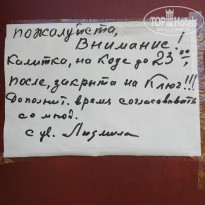 TOP HOTELS
пожалуйста,
Внимание!
Калитка, на коде до 23⁰⁰
после, закрыта на Ключ!!!
Дополнит. время согласовывать
со мной.
с ув. Людмила